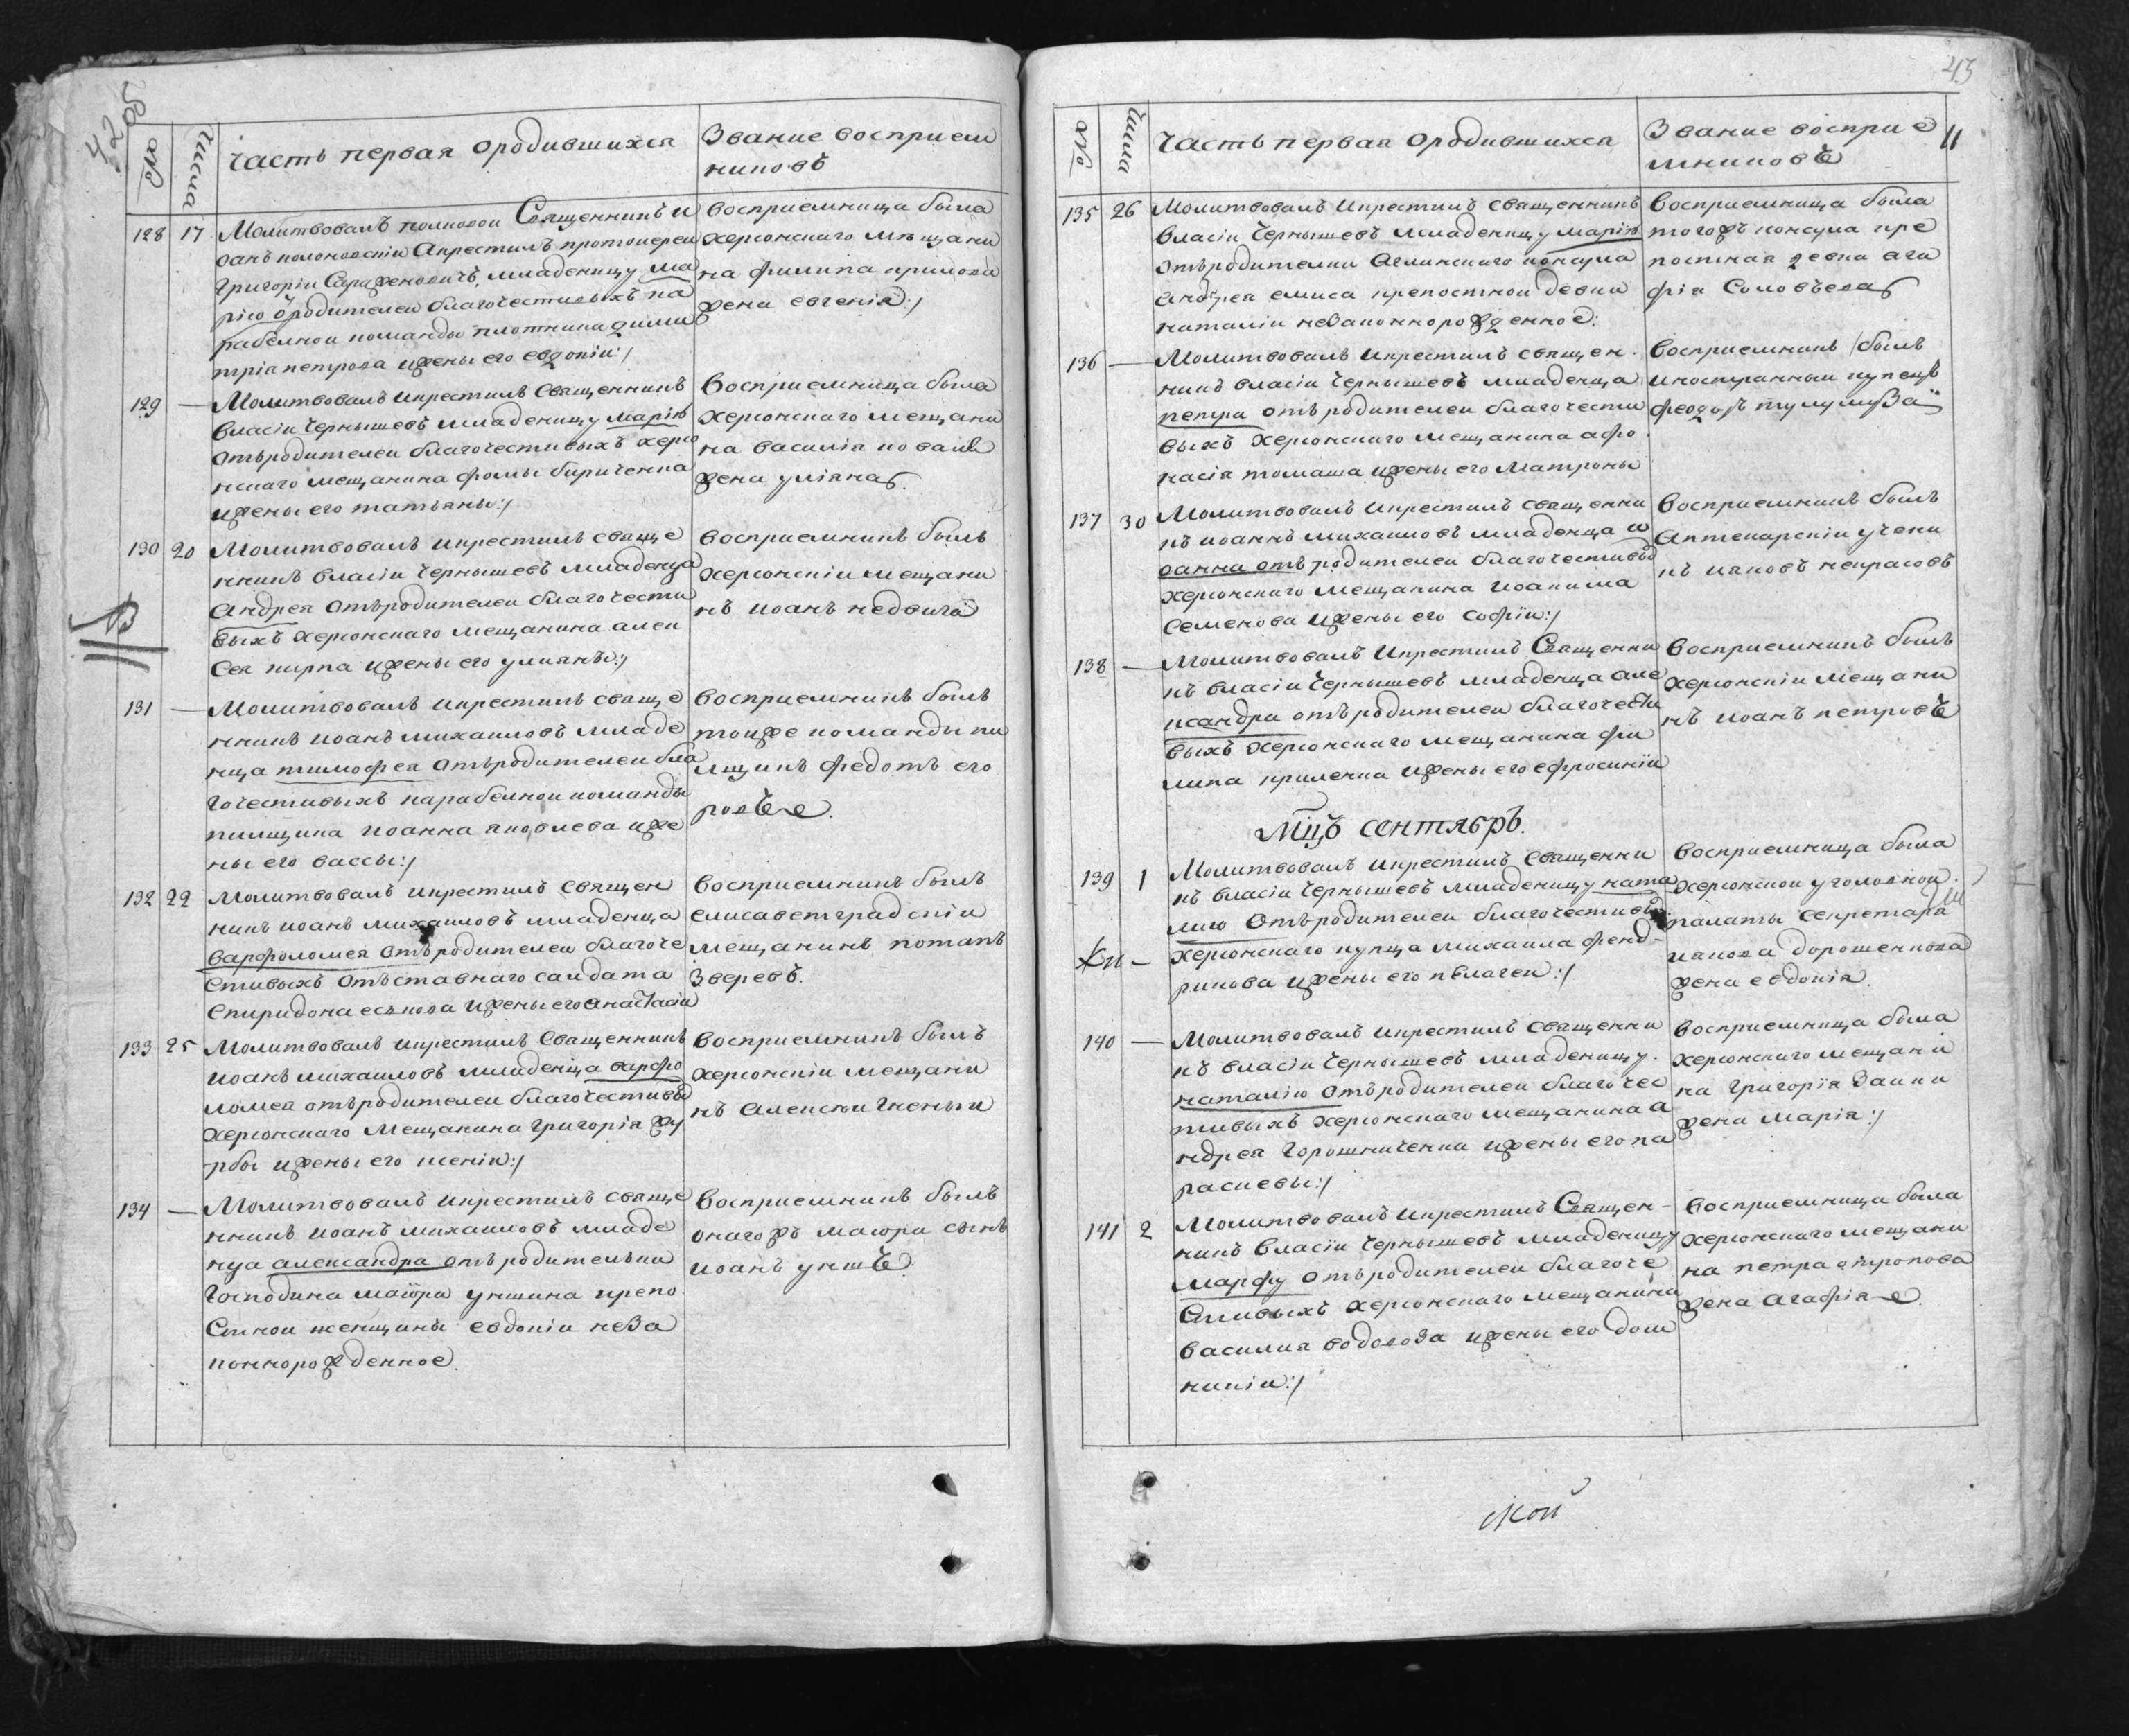 42 об
№
Числа
Часть первая ородившихся
Звание восприем
никовъ
128
17
Молитвовалъ полковои Священникъ и
оанъ полоновскiи Акрестилъ протоиереи
григорiи Сарафеновичъ, младеницу ма
рiю Ӧродителеи благочестивыхъ ка
рабелнои команды плотника дими
трiя петрова ижены его евдокiи:/
Восприемница была
херсонскаго мѣщани
на филипа
жена евгенiя:/
129
—
Молитвовалъ икрестилъ Священникъ
власiи Чернышевъ младеницу марiю
отъродителеи благочестивыхъ херсо
нскаго мещанина фомы кириченка
ижены его татьяны:/
Восприемница была
херсонскаго мещани
на василiя коваля
жена улiяна
130
20
Молитвовалъ икрестилъ свяще
нникъ власiи Чернышевъ младенца
Андрея отъродителеи благочести
выхъ херсонскаго мещанина алек
сея кирпа ижены его улиянъ:/
Восприемникъ былъ
херсонскiи мещани
нъ иоанъ недвига
131
—
Молитвовалъ икрестилъ свяще
нникъ иоанъ михаиловъ младе
нца тимофея отъродителеи бла
гочестивыхъ карабелнои команды
пилщика иоанна яковлева иже
ны его вассы:/
восприемникъ былъ
тоиже команды пи
лщикъ федотъ его
ровъ
132
22
Молитвовалъ икрестилъ священ
никъ иоанъ михаиловъ младенца
варфоломея отъродителеи благоче
стивыхъ отъставнаго салдата
Спиридона есъкова ижены его анастасiи
Восприемникъ былъ
елисаветградскiи
мещанинъ потапъ
Зверевъ.
133
25
Молитвовалъ икрестилъ Священникъ
иоанъ михаиловъ младенца варфо
ломея отъродителеи благочестивы
херсонскаго мещанина григорiя жу
рбы ижены его ксенiи:/
Восприемникъ былъ
херсонскiи мещани
нъ Алексѣи
134
—
Молитвовалъ икрестилъ свяще
нникъ иоанъ михаиловъ младе
нца александра отъ родителъки
господина маiора укшина крепо
стнои женщины евдокiи неза
коннорожденное.
Восприемникъ былъ
онагожъ маiора сынъ
иоанъ
43
11
№
Числа
Часть первая ородившихся
Звание восприе
мниковъ
135
26
Молитвовалъ икрестилъ священникъ
власiи Чернышевъ младеницу марiю
отъродителки Аглинскаго консула
Андрея емиса крепостнои девки
наталiи незаконнорожденное:
Восприемница была
тогожъ консула кре
постная девка ага
фiя Соловъева
136
—
Молитвовалъ икрестилъ священ
никъ власiи Чернышевъ младенца
петра отъродителеи благочести
выхъ херсонскаго мещанина афо
насiя томаша ижены его Матроны
Восприемникъ былъ
иностранныи купецъ
феодоръ
137
30
Молитвовалъ икрестилъ священни
къ иоаннъ михаиловъ младенца и
оанна отъ родителеи благочестивы
херсонскаго мещанина иоакима
Семенова ижены его софiи:/
Восприемникъ былъ
Аптекарскiи учени
къ ияковъ некрасовъ
138
—
Молитвовалъ икрестилъ Священни
къ власiи Чернышевъ младенца але
ксандра отъродителеи благочести
выхъ херсонскаго мещанина фи
липа криленка ижены его ефросинiи
Восприемникъ былъ
херсонскiи мещани
нъ иоанъ петровъ
Мцъ сентябръ.
139
1
Молитвовалъ икрестилъ священни
къ власiи Чернышевъ младеницу ната
лию отъродителеи благочестивы
херсонскаго купца михаила фенд-
рикова ижены его пелагеи:/
Восприемница была
херсонскои уголовнои
палаты секретаря
иякова дорошенкова
жена евдокiя.
140
—
Молитвовалъ икрестилъ священни
къ власiи Чернышевъ младеницу
наталiю отъродителеи благочес
тивыхъ херсонскаго мещанина а
ндрея горошниченка ижены его па
раскевы:/
Восприемница была
херсонскаго мещани
на григорiя Заики
жена марiя:/
141
2
Молитвовалъ икрестилъ Священ-
никъ власiи Чернышевъ младеницу
марфу отъродителеи благоче
стивыхъ херсонскаго мещанина
василия водовоза ижены его дом
никiи:/
Восприемница была
херсонскаго мещани
на петра
жена агафiя
ской